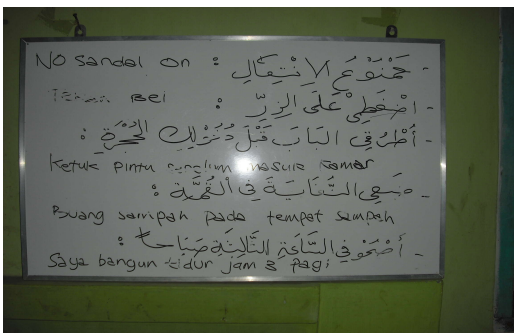 No sandal on : ممنوع الانتعال -
Tekan Bel : اضغطي على الزر -
أطرقي الباب قبل دخولك الحجرة : -
Ketuk pintu sebelum masuk kamar
في القمامة : -
Buang sampah pada tempat sampah
أصحو في الساعة الثالثة صباحا : -
Saya bangun tidur jam 3 pagi